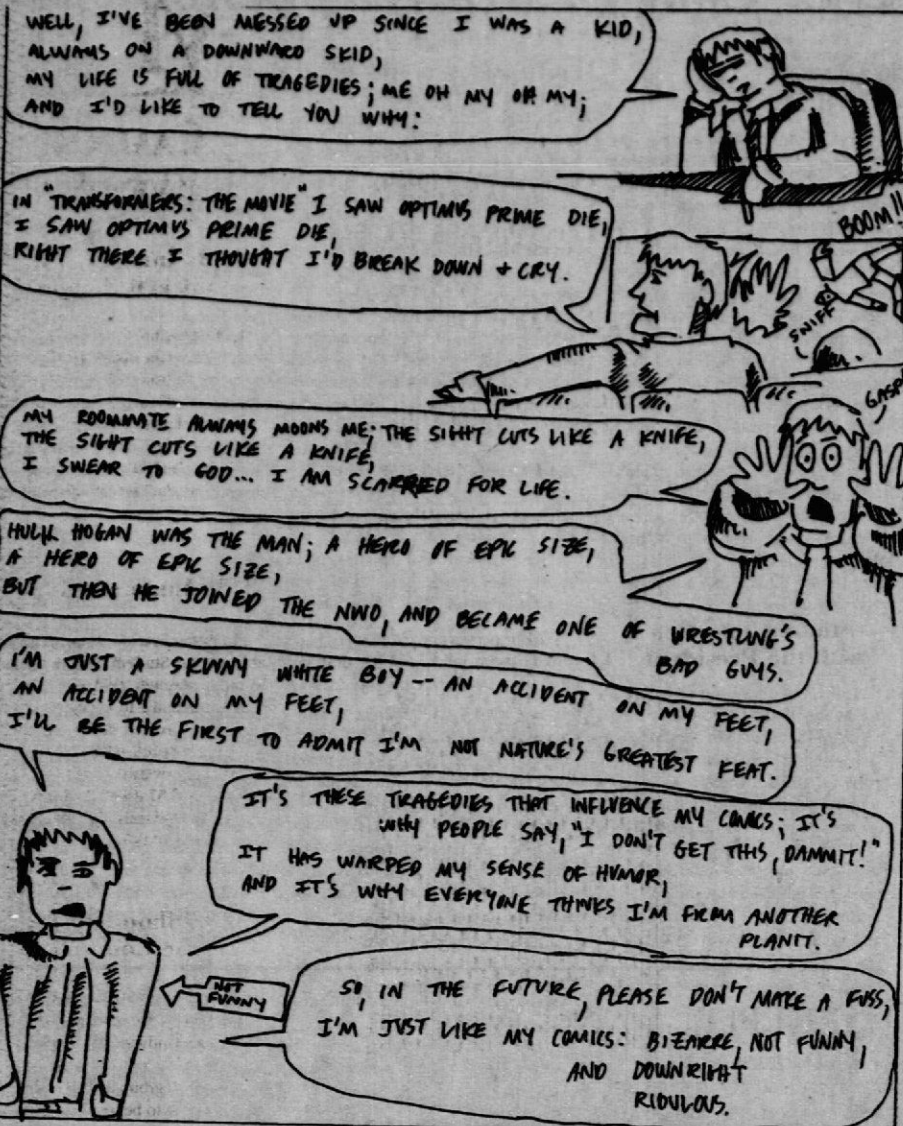 WELL, I'VE BEEN MESSED UP SINCE I WAS A KID,
ALWAYS ON A DOWNWARD SKID,
MY LIFE IS FULL OF TRAGEDIES; ME OH MY OH MY;
AND I'D LIKE TO TELL YOU WHY:
IN "TRANSFORMERS: THE MOVIE" I SAW OPTIMUS PRIME DIE,
I SAW OPTIMUS PRIME DIE,
RIGHT THERE I THOUGHT I'D BREAK DOWN + CRY.
BOOM!!
SNIFF
MY ROOMMATE ALWAYS MOONS ME; THE SIGHT CUTS LIKE A KNIFE,
THE SIGHT CUTS LIKE A KNIFE,
I SWEAR TO GOD... I AM SCARRED FOR LIFE.
GASP
HULK HOGAN WAS THE MAN; A HERO OF EPIC SIZE,
A HERO OF EPIC SIZE,
BUT THEN HE JOINED THE NWO, AND BECAME ONE OF WRESTLING'S
BAD GUYS.
I'M JUST A SKINNY WHITE BOY -- AN ACCIDENT ON MY FEET,
AN ACCIDENT ON MY FEET,
I'LL BE THE FIRST TO ADMIT I'M NOT NATURE'S GREATEST FEAT.
IT'S THESE TRAGEDIES THAT INFLUENCE MY COMICS; IT'S
WHY PEOPLE SAY, "I DON'T GET THIS, DAMMIT!"
IT HAS WARPED MY SENSE OF HUMOR,
AND IT'S WHY EVERYONE THINKS I'M FROM ANOTHER
PLANIT.
NOT
FUNNY
SO, IN THE FUTURE, PLEASE DON'T MAKE A FUSS,
I'M JUST LIKE MY COMICS: BIZARRE, NOT FUNNY,
AND DOWNRIGHT
RIDULOUS.